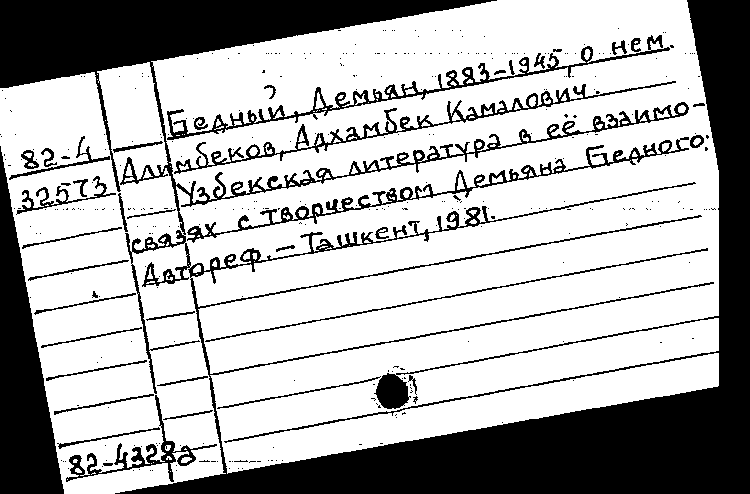 Бедный, Демьян, 1883-1945, о нем.
82-4
Алимбеков, Адхамбек Камалович.
32573
Узбекская литература в её взаимо-
связях с творчеством Демьяна Бедного:
Автореф. – Ташкент, 1981.
82-4328а